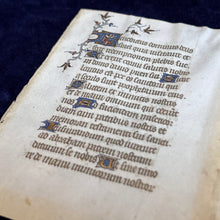 Benedictus dominus deus
israel quia visitavit et
fecit redemptionem plebis sue
Et erexit cornu salutis nobis
in domo david pueri sui
Sicut locutus est per os sanctorum
qui a seculo sunt prophetarum eius
Salutem ex inimicis nostris
et de manu omnium qui
oderunt nos Ad faciendam
cum patribus nostris et
memorari testamenti sui sancti
Iusiurandum quod iuravit
ad abraham patrem nostrum
daturum se nobis Ut sine timo
re de manu inimicorum nostror